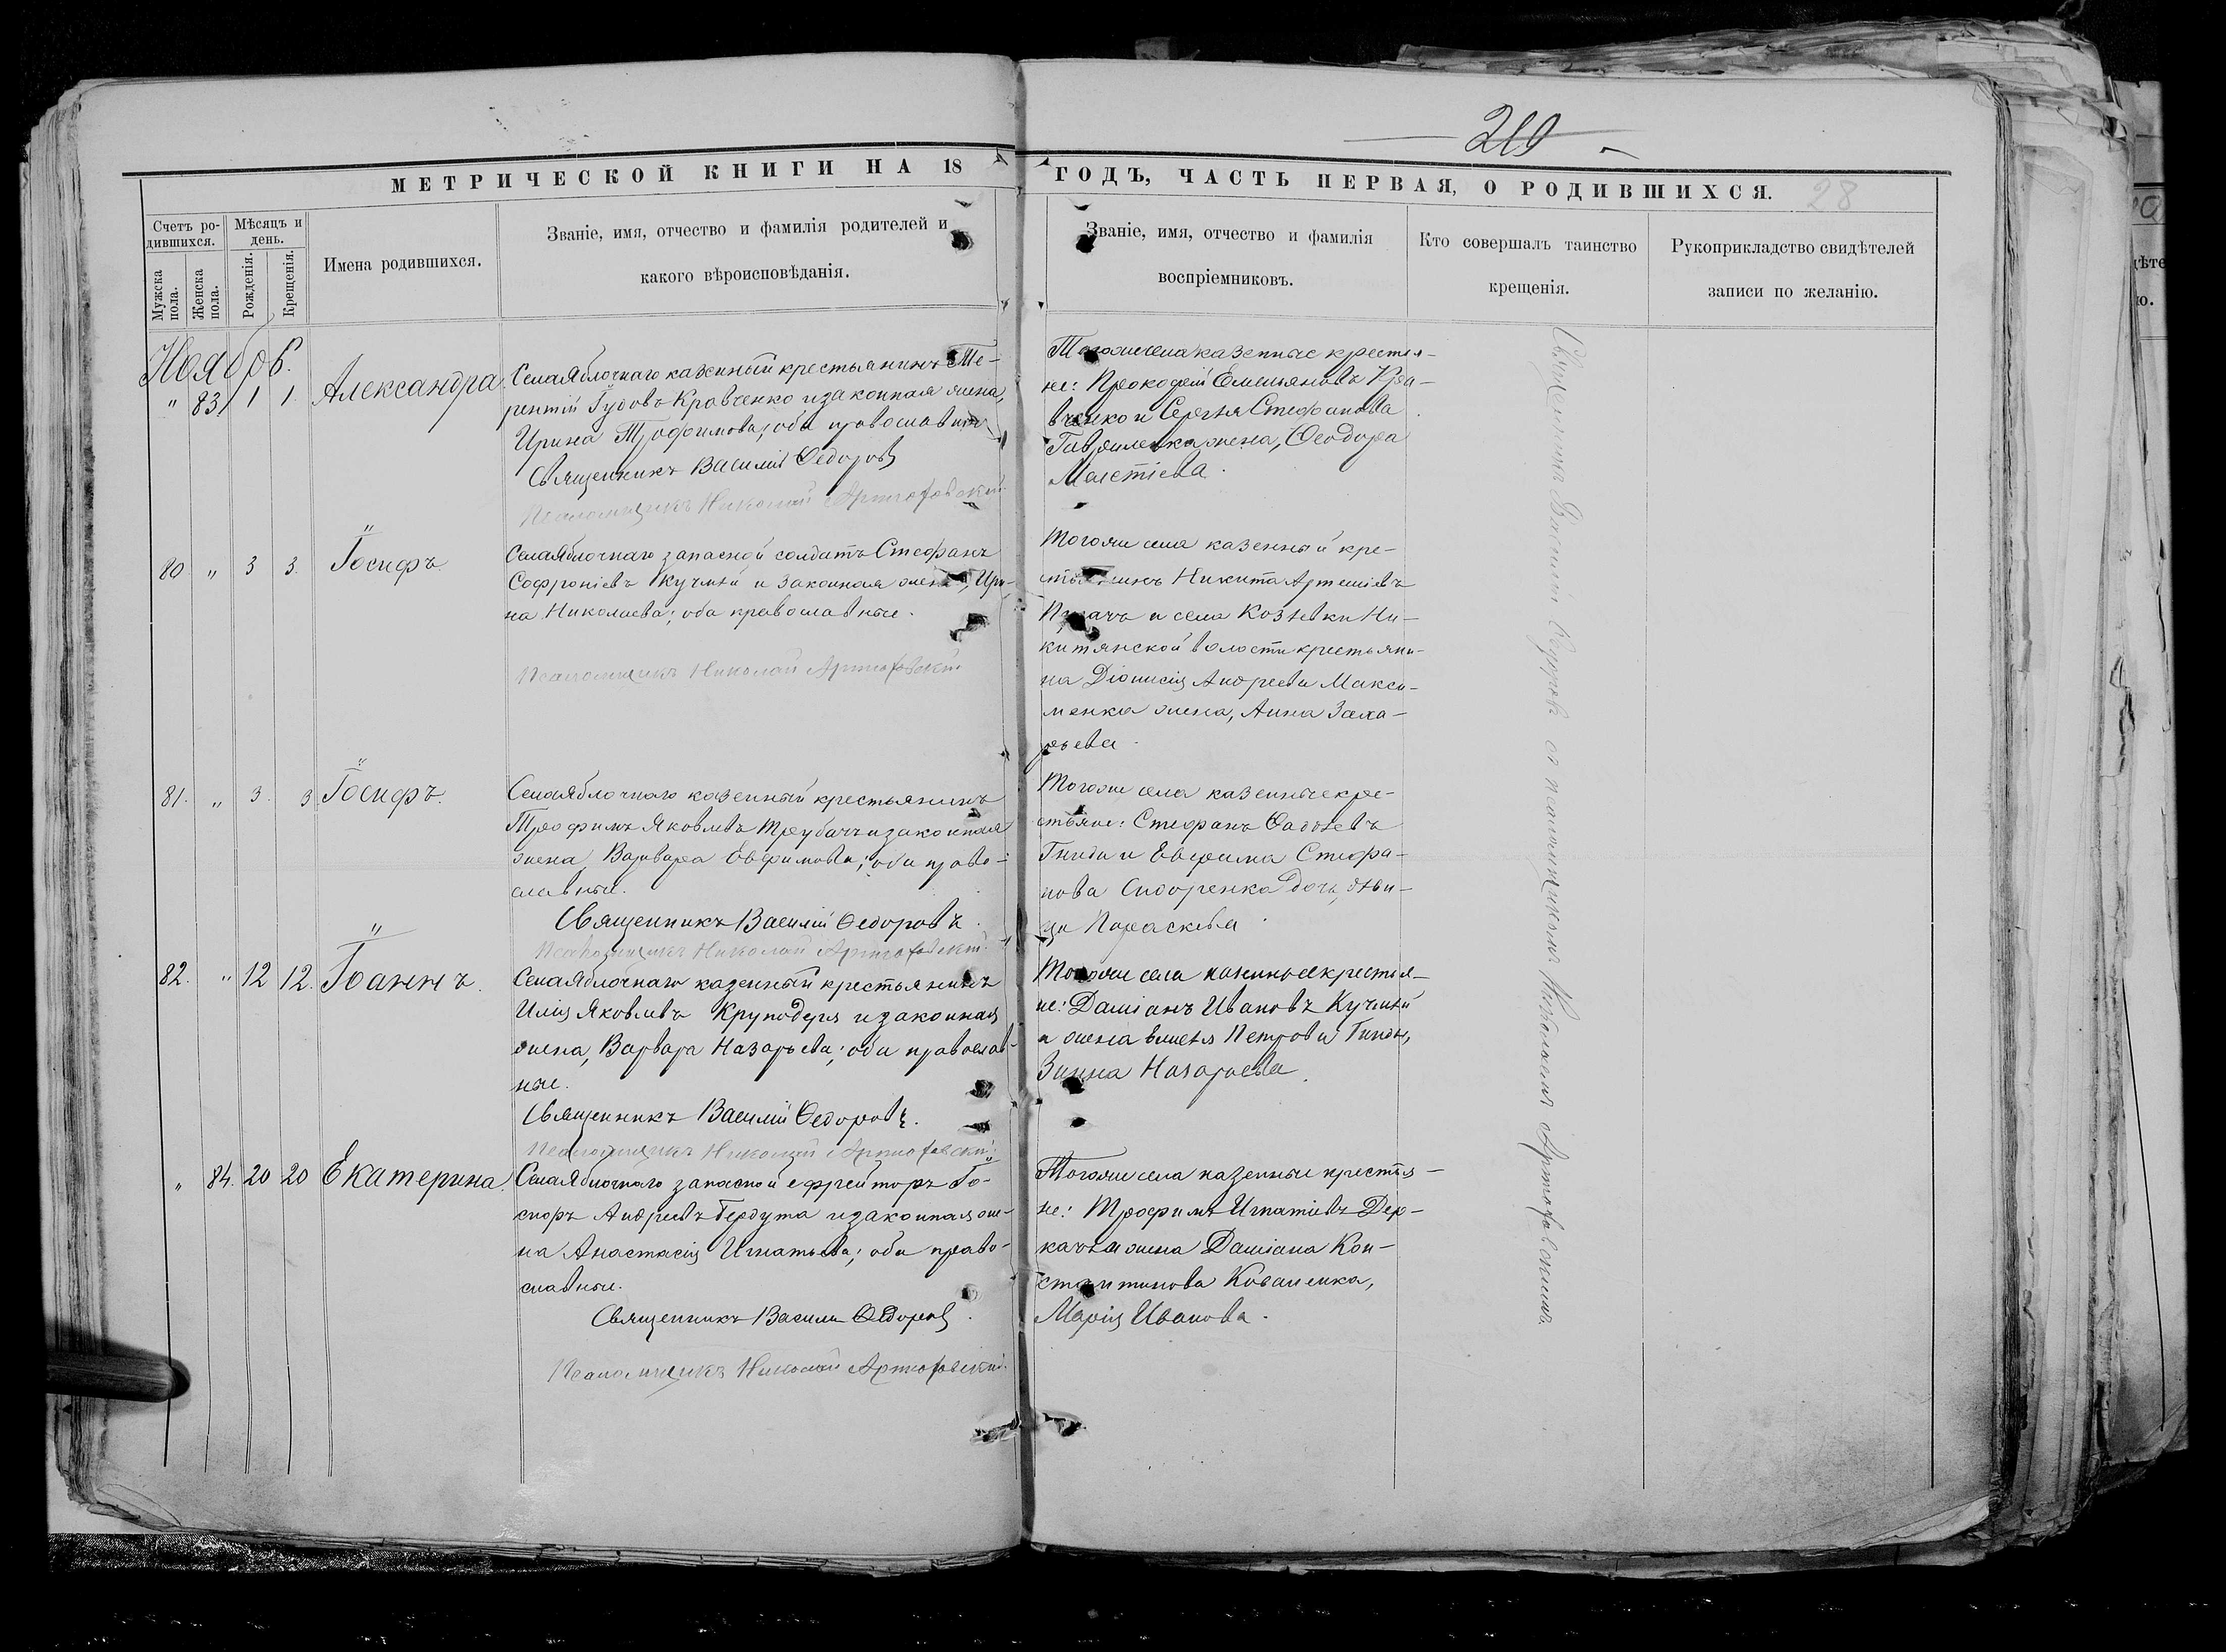 219
28
МЕТРИЧЕСКОЙ КНИГИ НА 18
ГОДЪ, ЧАСТЬ ПЕРВАЯ, О РОДИВШИХСЯ.
Счетъ ро-
дившихся.
Мужска
пола.
Женска
пола.
Мѣсяцъ и
день.
Рожденія.
Крещенія.
Имена родившихся.
Званіе, имя, отчество и фамилія родителей и
какого вѣроисповѣданія.
Званіе, имя, отчество и фамилія
воспріемниковъ.
Кто совершалъ таинство
крещенія.
Рукоприкладство свидѣтелей
записи по желанію.
Ноябрь.
" 83 1 1. Александра
Села Яблочнаго казенный крестьянинъ Те-
рентій Кравченко и законная жена,
Ирина Трофимова; оба православные
Священникъ Василій Ѳедоровъ
Псаломщикъ Николай Артюховскій
Того же села казенные крестья-
не: Прокофій Емельяновъ Кра-
вченко и Сергѣя Стефанова
Гавриленка жена, Ѳеодора
80 " 3 3. Іосифъ
Села Яблочнаго запасной солдатъ Стефанъ
Софроніевъ Кучмій и законная жена, Ири-
на Николаева; оба православные.
Псаломщикъ Николай Артюховскій
Того же села казенный кре-
стьянинъ Никита Артеміевъ
Пугачъ и села Козѣевки Ни-
китянской волости крестьяни-
на Діонисія Андреева Макси-
менка жена, Анна Заха-
рьева.
81. " 3. 3 Іосифъ.
Села Яблочнаго казенный крестьянинъ
Трофимъ Яковлевъ Трубачъ и законная
жена Варвара Евфимова; оба право-
славные.
Священникъ Василій Ѳедоровъ.
Псаломщикъ Николай Артюховскій
Того же села казенные кре-
стьяне: Стефанъ Фадѣевъ
Гнида и Евфима Стефа-
нова Сидоренка дочь, дѣви-
ца Параскева
82. " 12 12. Іоаннъ.
Села Яблочнаго казенный крестьянинъ
Илія Яковлевъ Круподеря и законная
жена, Варвара Назарьева; оба православ-
ные.
Священникъ Василій Ѳедоровъ.
Псаломщикъ Николай Артюховскій
Того же села казенные крестья-
не: Даміанъ Ивановъ Кучмій
и жена Петрова Гниды,
Зинна Назарьева.
" 84. 20 20 Екатерина.
Села Яблочнаго запасной ефрейторъ Іо-
Андреевъ Гердута и законная же-
на Анастасія Игнатьева; оба право-
славные.
Священникъ Василій Ѳедоровъ.
Псаломщикъ Николай Артюховскій.
Того же села казенные крестья-
не: Трофимъ Игнатіевъ Дер-
качъ и жена Даміана Кон-
стантинова Коваленка,
Марія Иванова.
Священникъ Василій Ѳедоровъ съ псаломщикомъ Николаемъ Артюховскимъ